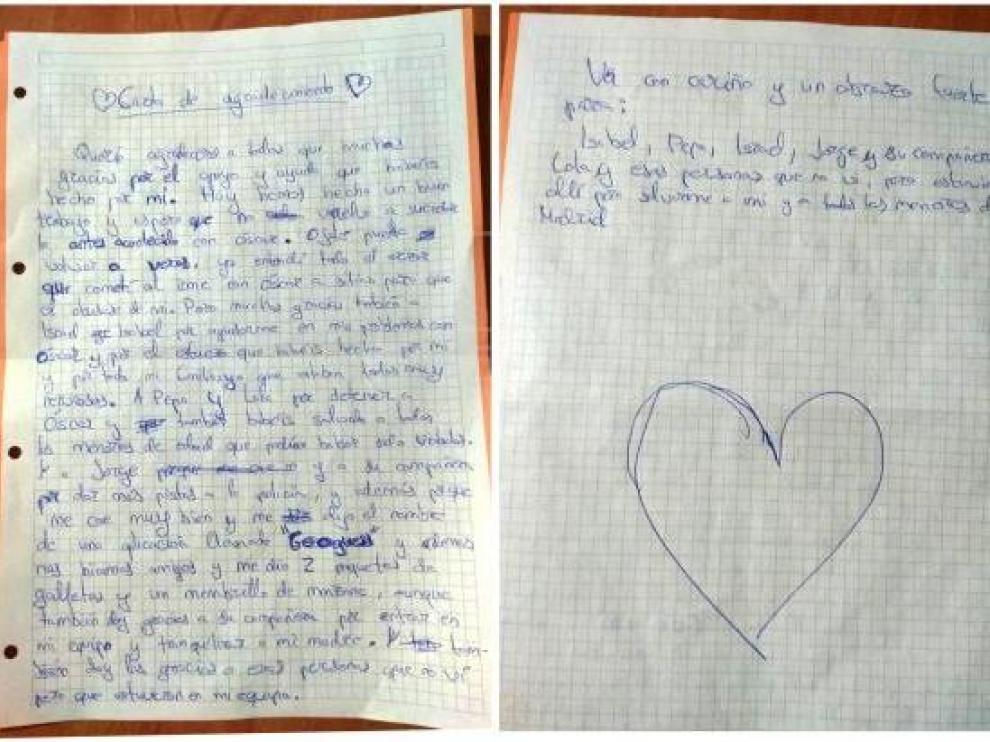 Carta de agradecimiento
Quería agradeceros a todos que muchas
gracias por el apoyo y ayuda que habéis
hecho por mí. Hoy hemos hecho un buen
trabajo y espero que no vuelva a suceder
lo antes acontecido con Óscar. Ojalá pueda
a veces, ya entendí todo el error
que cometí al irme con Óscar a sitios para que
se de mí. Pero muchas gracias también a
Isaad Isabel por ayudarme en mis problemas con
Óscar y por el esfuerzo que habéis hecho por mí
y por toda mi
. A Pepa y Lola por detener a
Óscar y también habéis salvado a todos
los menores de edad que podían haber sido violados.
Y a Jorge porque y a su compañera
por dar más pistas a la policía, y además porque
me cae muy bien y me dijo el nombre
de una aplicación llamada "Geoguess" y además
nos hicimos amigos y me dio 2 paquetes de
galletas y un membrillo de manzana, aunque
también doy gracias a su compañera por entrar en
mi equipo y tranquilizar a mi madre. Y tam-
bién doy las gracias a esas personas que no vi
pero que estuvieron en mi equipo.
Va con cariño y un abrazo fuerte
para:
Isabel, Pepa, Isaad, Jorge y su compañera
Lola y esas personas que no vi, pero estuvieron
allí para salvarme a mí y a todos los menores de
Madrid